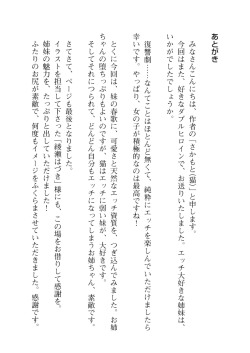 あとがき
みなさんこんにちは、作者の「さかもと(猫)」と申します。
今回はまた、好きなダブルヒロインで、お送りいたしました。エッチ大好きな姉妹は、
いかがでしたでしょうか。
復讐劇……なんてことはほとんど無くて、純粋にエッチを楽しんでいただけましたら
幸いです。やっぱり、女の子が積極的なのは最高ですね!
とくに今回は、妹の春歌に、可愛さと天然なエッチ資質を、つぎ込んでみました。お姉
ちゃんの堕ちっぷりもよいのですが、猫はエッチに弱い妹が、大好きです。
そしてそれにつられて、どんどん自分もエッチになってしまうお姉ちゃん、素敵です。
さてさて、ページも最後となりました。
イラストを担当して下さった「綾瀬はづき」様にも、この場をお借りして感謝を。
姉妹の魅力を、たっぷりと出していただけました!
ふたりのお尻が素敵で、何度もイメージをふくらまさせていただきました。感謝です。